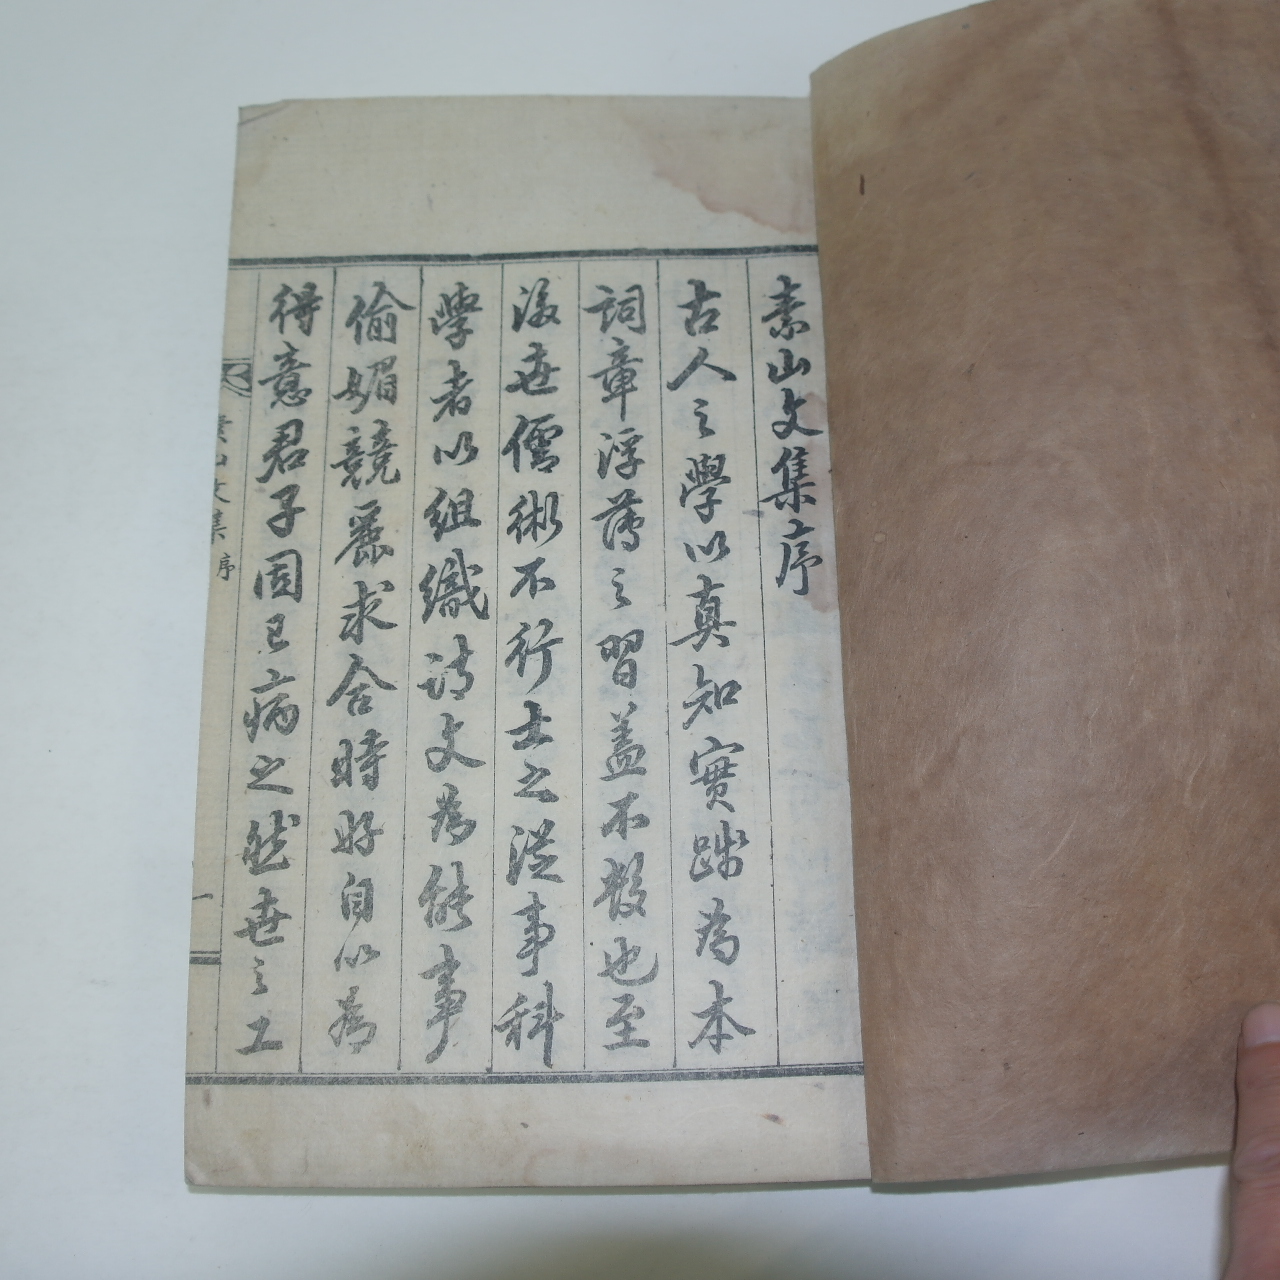 素山文集序
古人之學以真知實踐為本
詞章浮薄之習盖不數也至
後世儒術不行士之從事科
學者以組織詩文為能事
偷媚競麗求合時好自以為
得意君子固已病之然世之工
素山文集
序
一